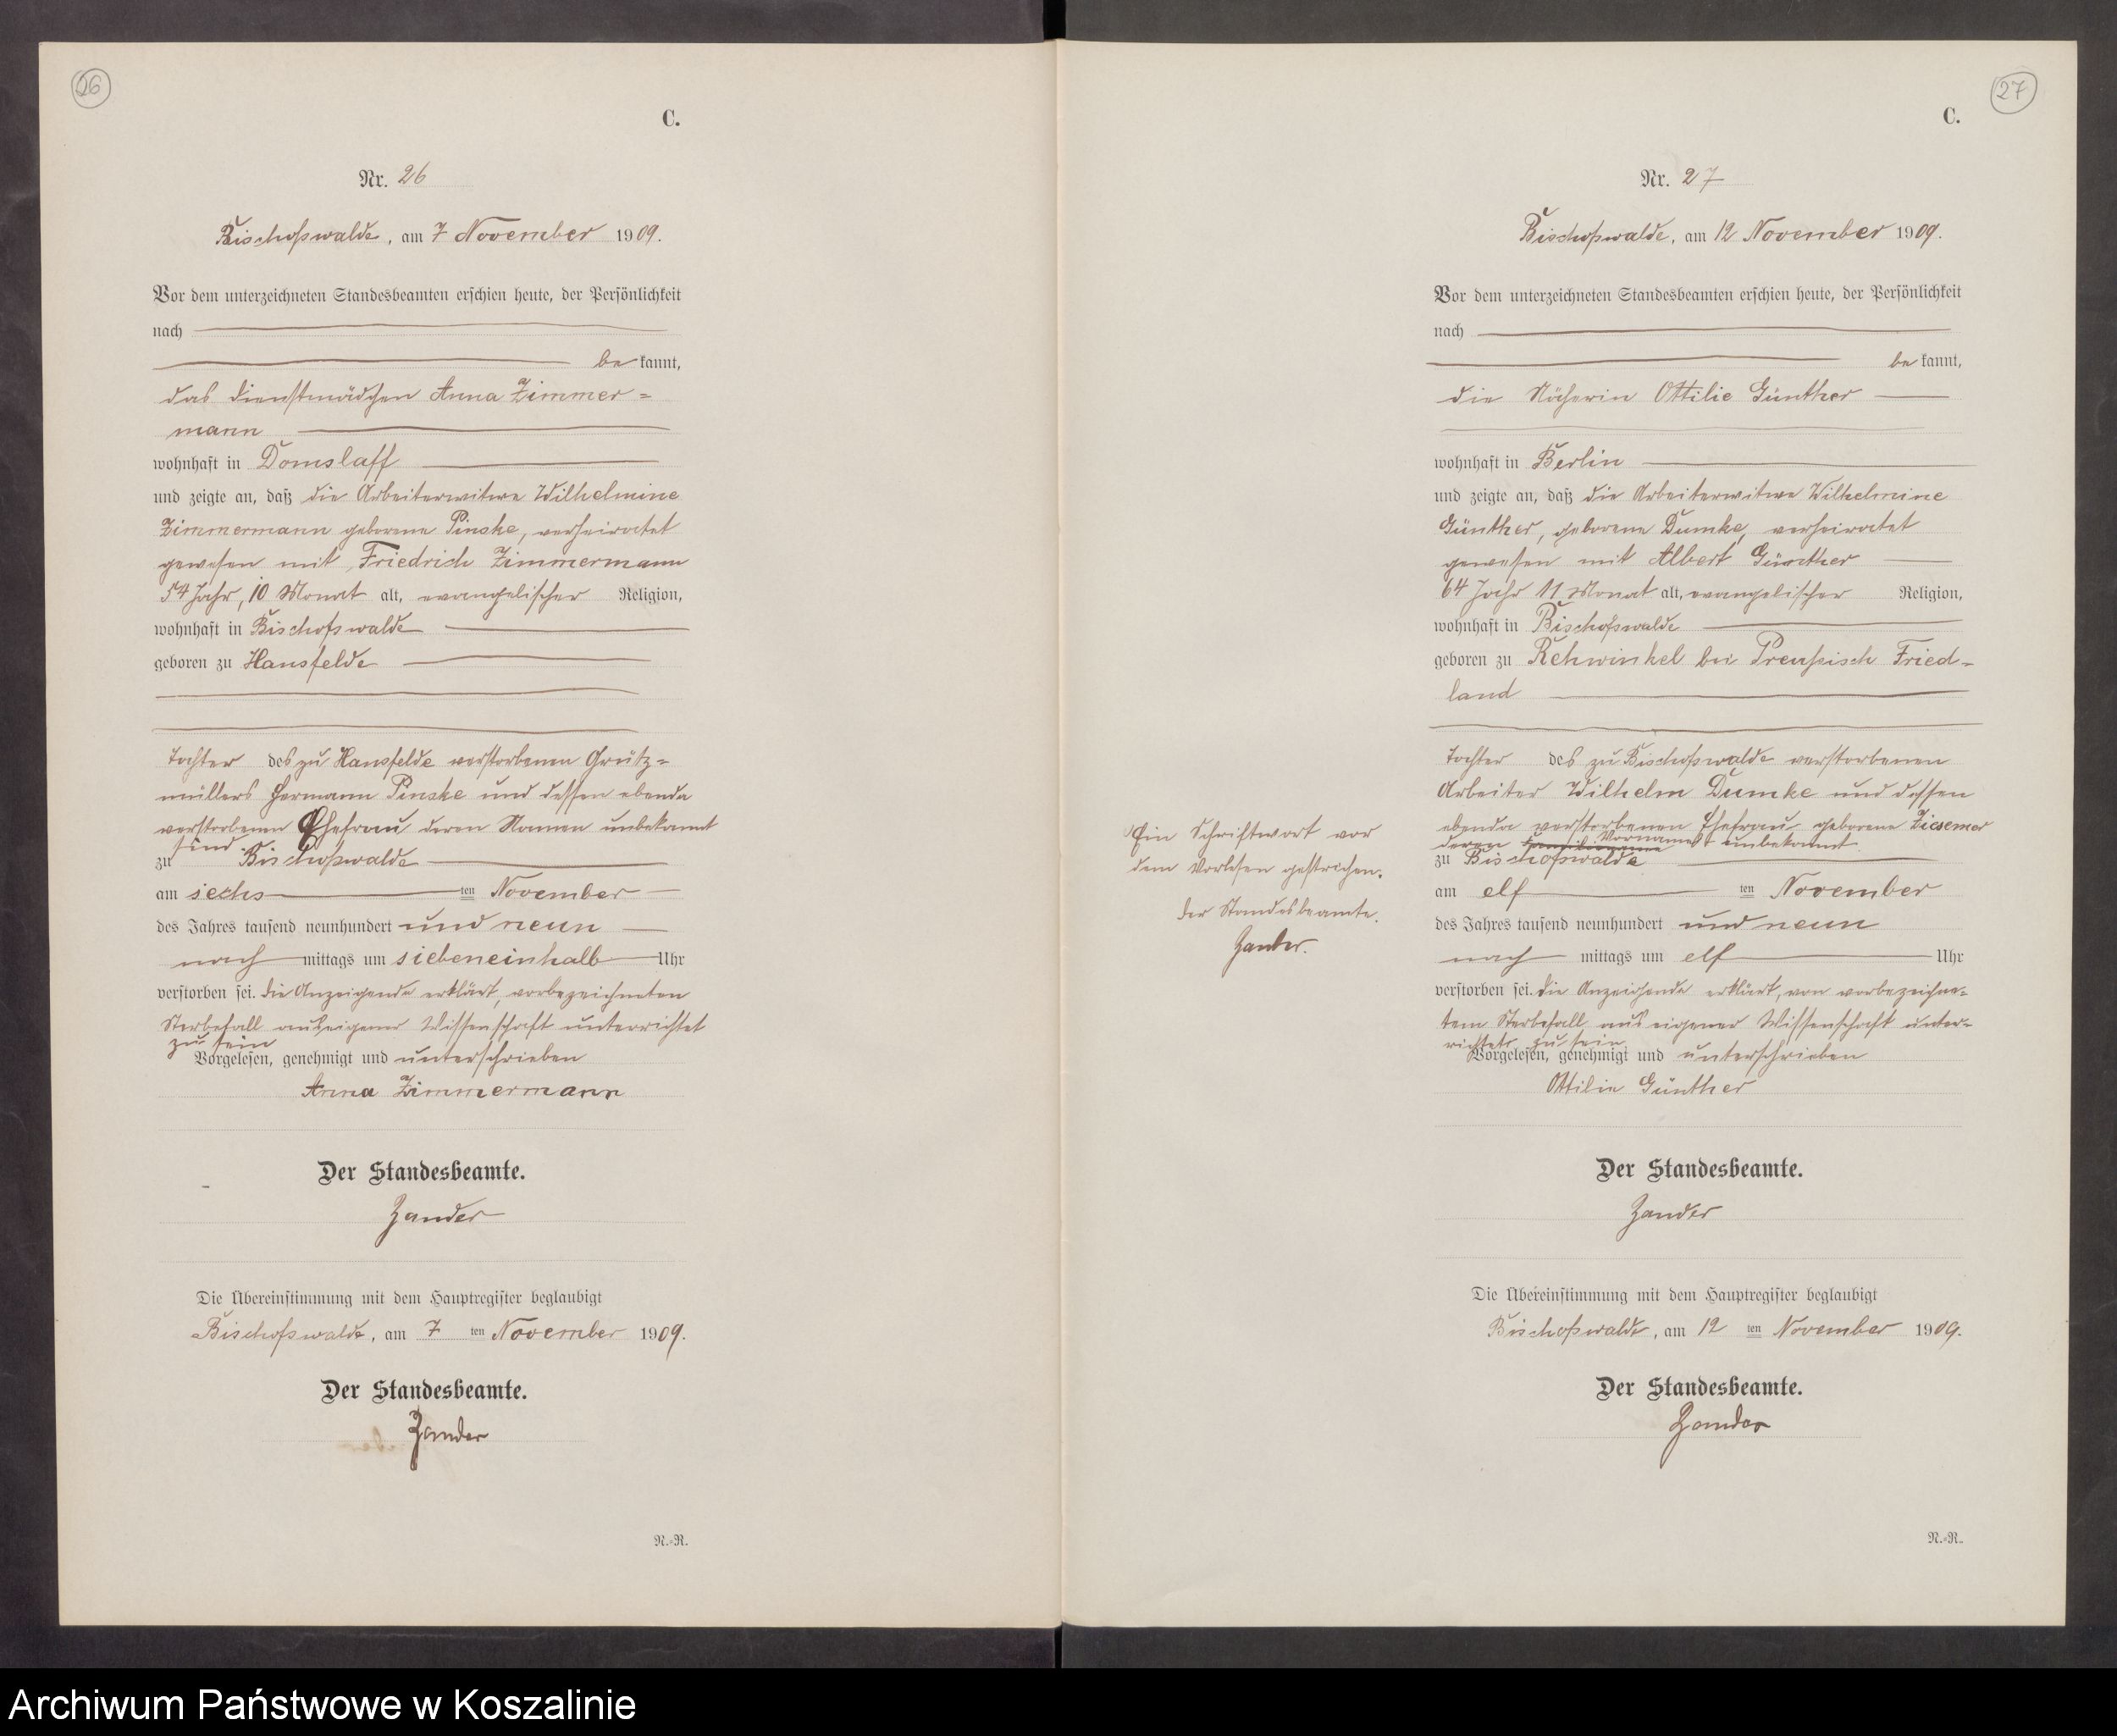 26
C.
Nr. 26
Bischofswalde, am 7 November 1909.
Vor dem unterzeichneten Standesbeamten erschien heute, der Persönlichkeit
nach
be kannt,
das Dienstmädchen Anna Zimmer=
mann
wohnhaft in Domslaff
und zeigte an, daß die Arbeiterwitwe Wilhelmine
Zimmermann geborene Pinske, verheiratet
gewesen mit Friedrich Zimmermann
54 Jahr, 10 Monat alt, evangelischer Religion,
wohnhaft in Bischofswalde
geboren zu Hansfelde
Tochter des zu Hansfelde verstorbenen Grütz=
müllers Hermann Pinske und dessen ebenda
verstorbenen Ehefrau deren Namen unbekannt
sind
zu Bischofswalde
am sechs ten November
des Jahres tausend neunhundert und neun
nach mittags um siebeneinhalb Uhr
verstorben sei. Die Anzeigende erklärt, vorbezeichneten
Sterbefall aus eigener Wissenschaft unterrichtet
zu sein
Vorgelesen, genehmigt und unterschrieben
Anna Zimmermann
Der Standesbeamte.
Zander
Die Übereinstimmung mit dem Hauptregister beglaubigt
Bischofswalde, am 7 ten November 1909.
Der Standesbeamte.
Zander
N.-R.
27
C.
Nr. 27
Bischofswalde, am 12 November 1909.
Vor dem unterzeichneten Standesbeamten erschien heute, der Persönlichkeit
nach
be kannt,
die Näherin Ottilie Günther
wohnhaft in Berlin
und zeigte an, daß die Arbeiterwitwe Wilhelmine
Günther, geborene Dumke, verheiratet
gewesen mit Albert Günther
64 Jahr 11 Monat alt, evangelischer Religion,
wohnhaft in Bischofswalde
geboren zu Rehwinkel bei Preußisch Fried=
land
Tochter des zu Bischofswalde verstorbenen
Arbeiter Wilhelm Dumke und dessen
ebenda verstorbenen Ehefrau geborene Ziesemer
deren Vornamen unbekannt
zu Bischofswalde
am elf ten November
des Jahres tausend neunhundert und neun
nach mittags um elf Uhr
verstorben sei. Die Anzeigende erklärt, von vorbezeichne=
tem Sterbefall aus eigener Wissenschaft unter=
richtet zu sein
Vorgelesen, genehmigt und unterschrieben
Ottilie Günther
Der Standesbeamte.
Zander
Die Übereinstimmung mit dem Hauptregister beglaubigt
Bischofswalde, am 12 ten November 1909.
Der Standesbeamte.
Zander
N.-R.
Ein Schriftwort vor
dem Vorlesen gestrichen.
Der Standesbeamte.
Zander.
Archiwum Państwowe w Koszalinie